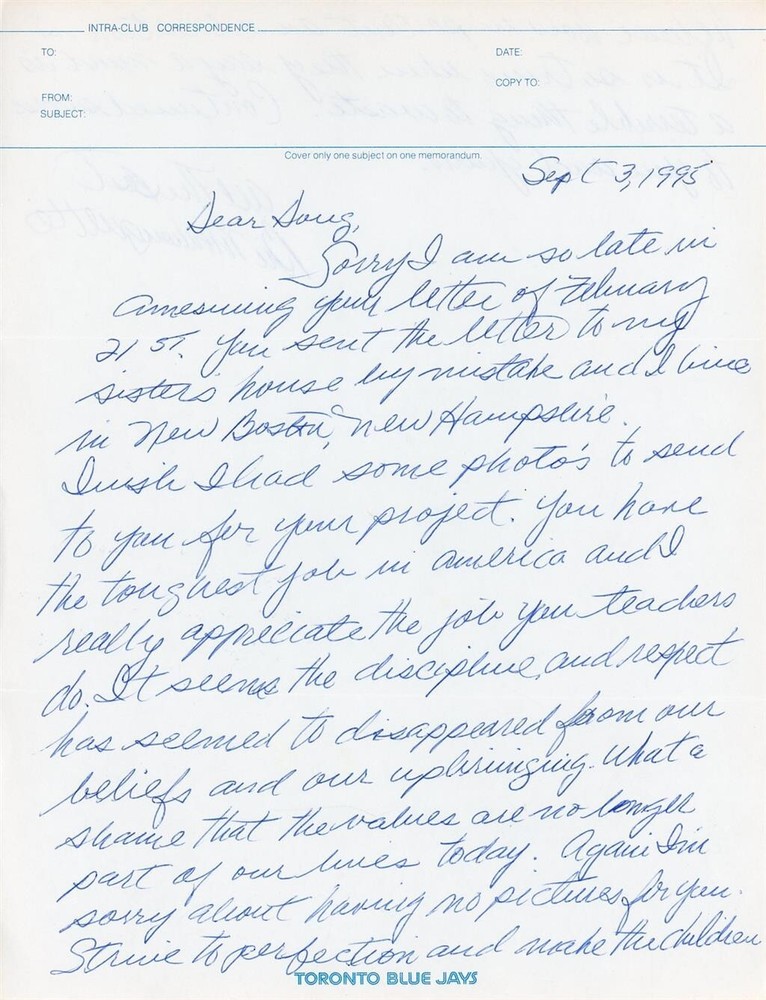 INTRA-CLUB CORRESPONDENCE
TO: DATE:
COPY TO:
FROM:
SUBJECT:
Cover only one subject on one memorandum.
Sept 3, 1995
Dear Doug,
Sorry I am so late in
answering your letter of February
21 st. You sent the letter to my
sisters house by mistake and I live
in New Boston, New Hampshire.
I wish I had some photo's to send
to you for your project. You have
the toughest job in america and I
really appreciate the job you teachers
do. It seems the discipline, and respect
has seemed to disappeared from our
beliefs and our upbringing. What a
shame that the values are no longer
part of our lives today. Again I'm
sorry about having no pictures for you.
Strive to perfection and make the children
TORONTO BLUE JAYS